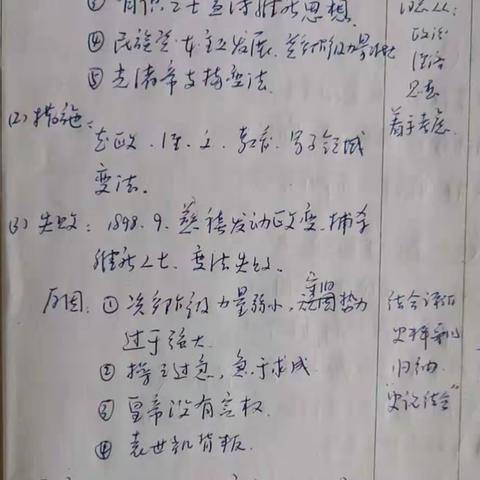 ③ 有识之士宣传维新思想.
④ 民族资本主义发展、资产阶级力量壮大
⑤ 光绪帝支持变法.
(2) 措施:
在政、经、文、教育、军事领域
变法。
(3) 失败: 1898.9. 慈禧发动政变、捕杀
维新人士、变法失败。
原因: ① 资产阶级力量弱小, 守旧势力
过于强大.
② 操之过急, 急于求成.
③ 皇帝没有实权.
④ 袁世凯背叛.
政治
经济
思想
着手考虑.
结合课后
史料来
归纳.
"史论结合"